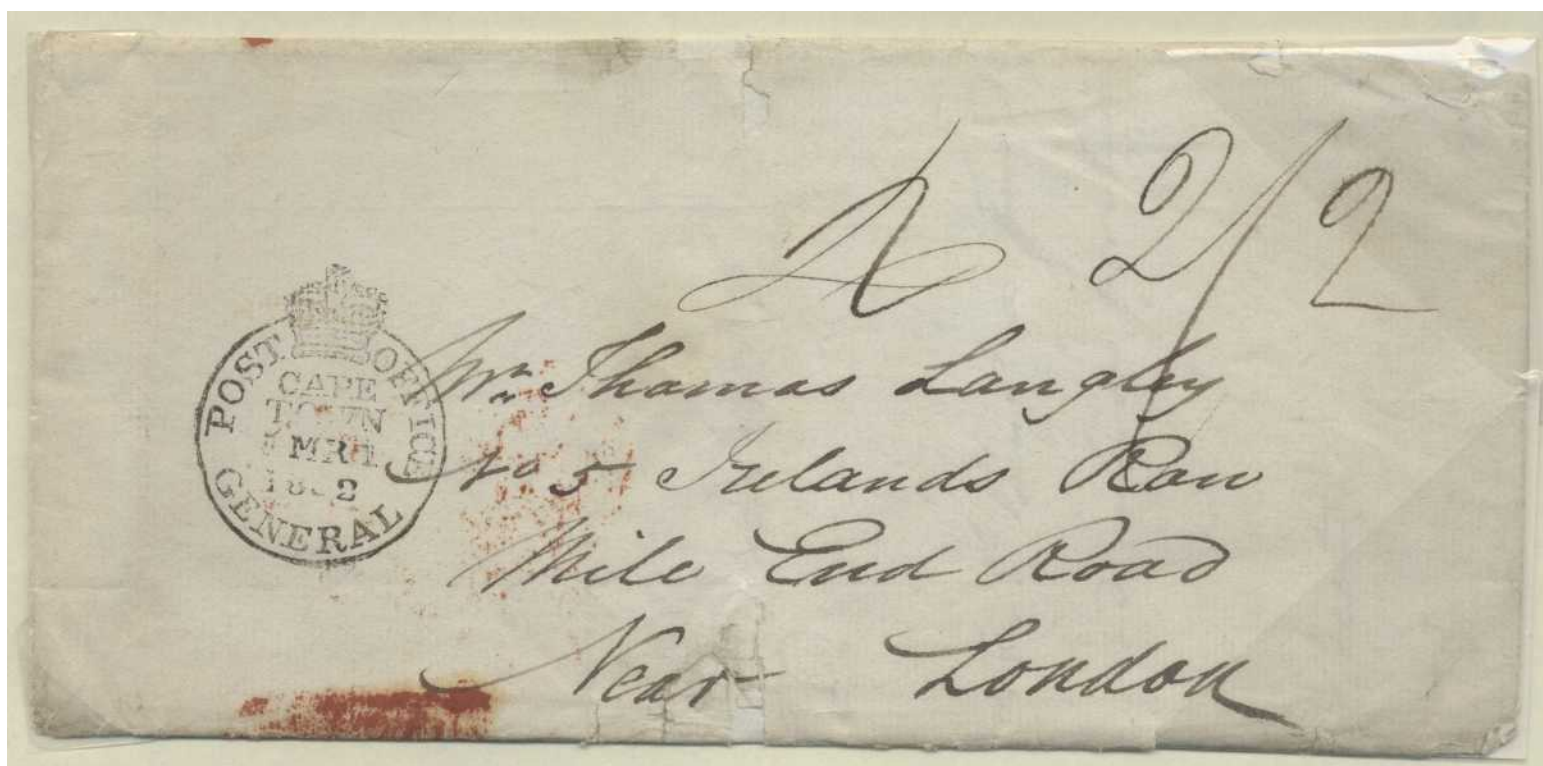 2/2
POST OFFICE
CAPE
TOWN
MR 1
GENERAL
Mr Thomas Langley
No 5 Irelands Row
Mile End Road
Near London